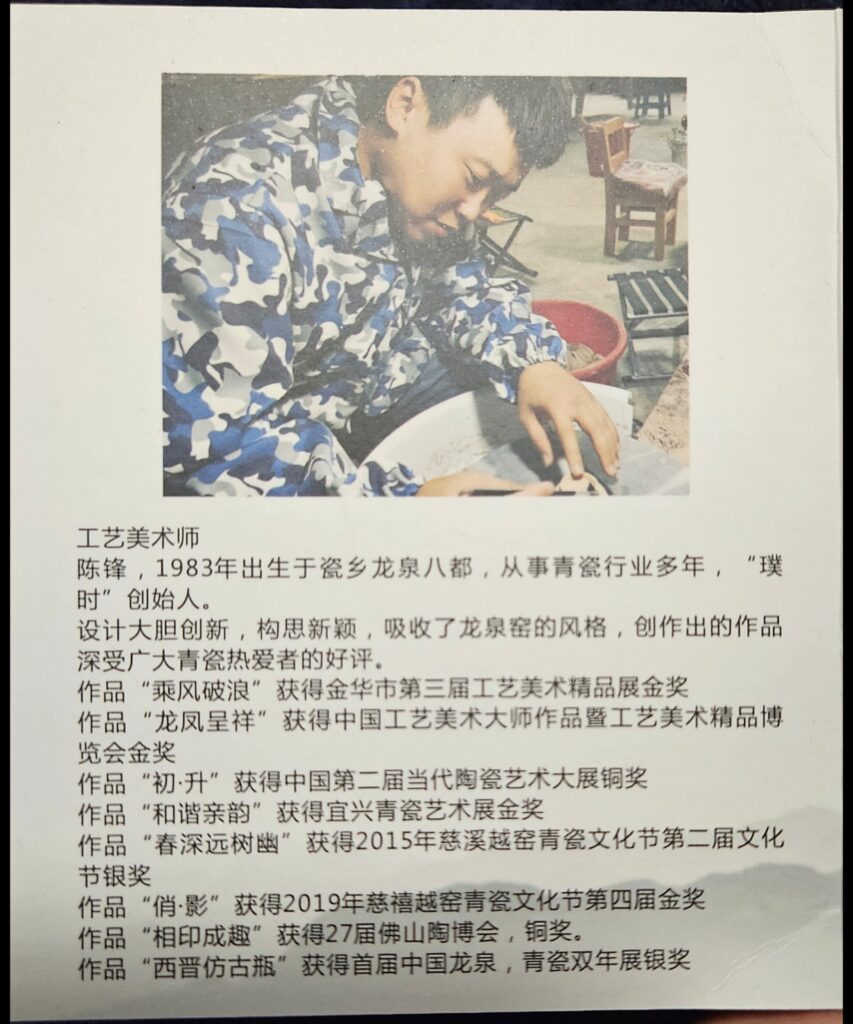 工艺美术师
陈锋，1983年出生于瓷乡龙泉八都，从事青瓷行业多年，“璞
时”创始人。
设计大胆创新，构思新颖，吸收了龙泉窑的风格，创作出的作品
深受广大青瓷热爱者的好评。
作品“乘风破浪”获得金华市第三届工艺美术精品展金奖
作品“龙凤呈祥”获得中国工艺美术大师作品暨工艺美术精品博
览会金奖
作品“初·升”获得中国第二届当代陶瓷艺术大展铜奖
作品“和谐亲韵”获得宜兴青瓷艺术展金奖
作品“春深远树幽”获得2015年慈溪越窑青瓷文化节第二届文化
节银奖
作品“俏·影”获得2019年慈禧越窑青瓷文化节第四届金奖
作品“相印成趣”获得27届佛山陶博会，铜奖。
作品“西晋仿古瓶”获得首届中国龙泉，青瓷双年展银奖